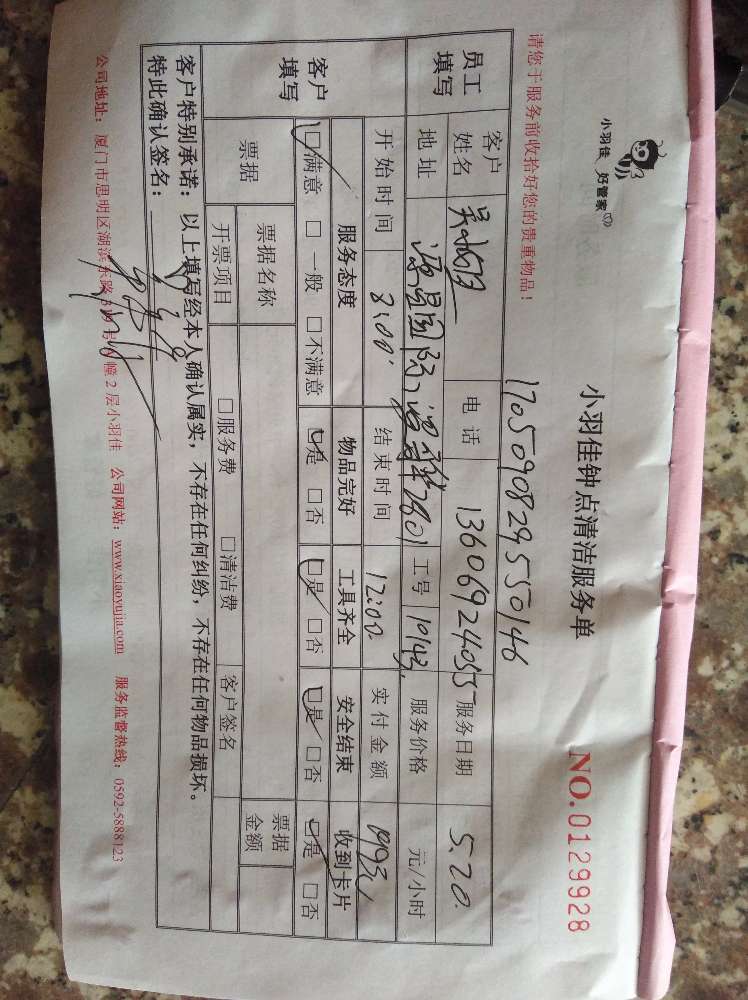 小羽佳 好管家
小羽佳钟点清洁服务单
NO.0129928
请您于服务前收拾好您的贵重物品！
1705090829550146
员工填写 客户姓名 电话 13606924055 服务日期 5.20.
地址 国际 2801 工号 10143 服务价格 元/小时
开始时间 8:00' 结束时间 12:00. 实付金额
客户填写 服务态度 物品完好 工具齐全 安全结束 收到卡片
□满意 □一般 □不满意 □是 □否 □是 □否 □是 □否 □是 □否
票据 票据名称 票据金额
开票项目 □服务费 □清洁费 客户签名
客户特别承诺：以上填写经本人确认属实，不存在任何纠纷，不存在任何物品损坏。
特此确认签名：
公司地址：厦门市思明区湖滨东路 号 幢2层小羽佳 公司网站：www.xiaoyujia.com 服务监督热线：0592-5888123